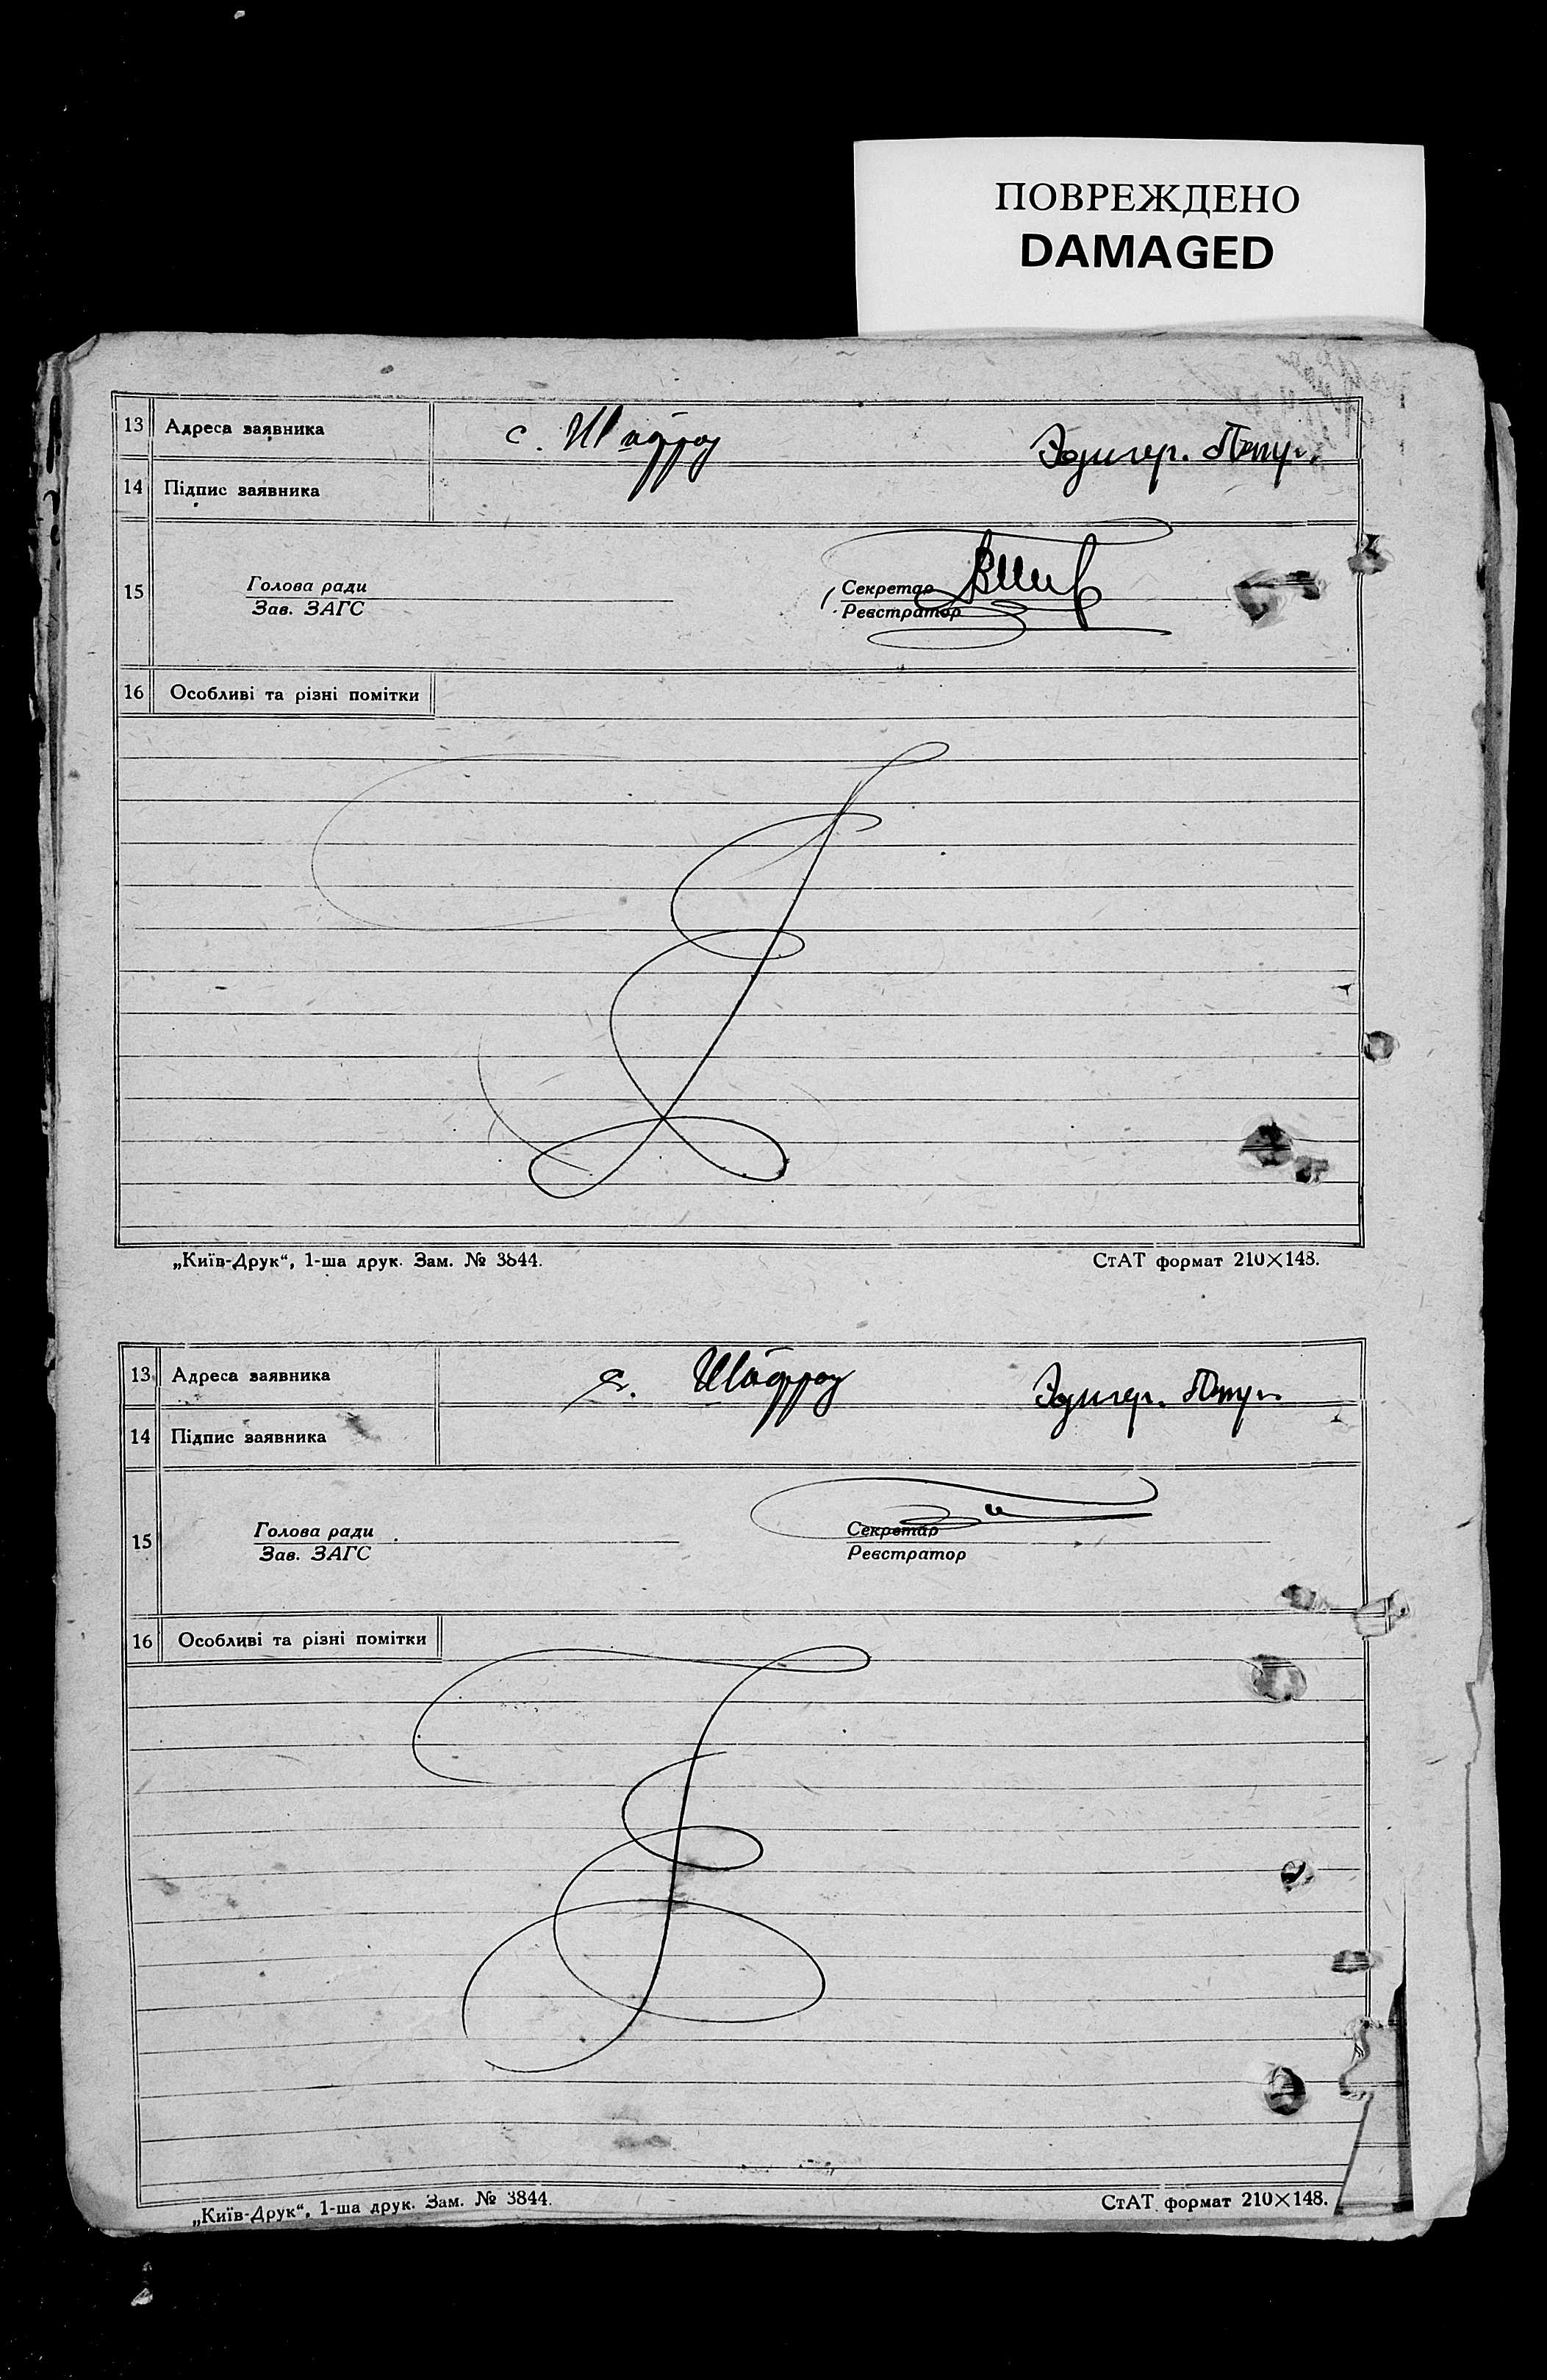 ПОВРЕЖДЕНО
DAMAGED
13 Адреса заявника с.
14 Підпис заявника
15 Голова ради Секретар
Зав. ЗАГС Реєстратор
16 Особливі та різні помітки
„Київ-Друк“, 1-ша друк. Зам. № 3844. СтАТ формат 210×148.
13 Адреса заявника с.
14 Підпис заявника
15 Голова ради Секретар
Зав. ЗАГС Реєстратор
16 Особливі та різні помітки
„Київ-Друк“, 1-ша друк. Зам. № 3844. СтАТ формат 210×148.